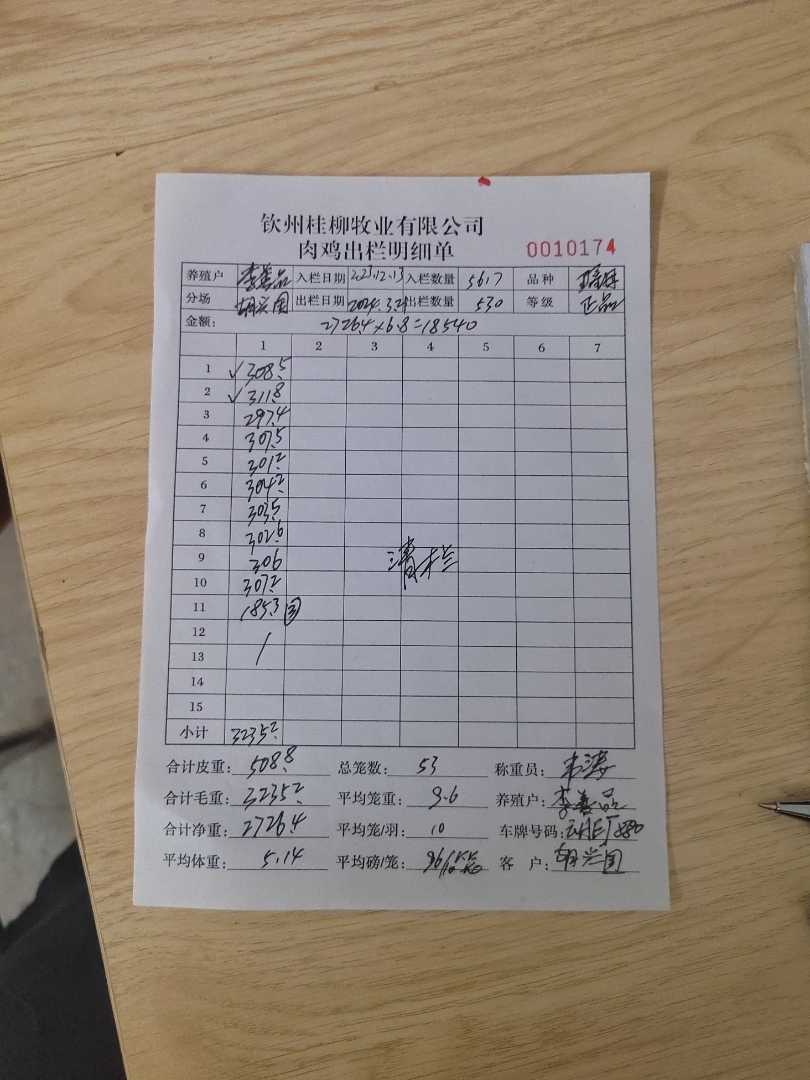 钦州桂柳牧业有限公司
肉鸡出栏明细单 0010174
养殖户 李善品 入栏日期 2023.12.13 入栏数量 5617 品种
分场 胡兴国 出栏日期 2024.3.21 出栏数量 530 等级 正品
金额: 2726.4×6.8=18540
1 2 3 4 5 6 7
1 ✓308.5
2 ✓311.8
3 297.4
4 307.5
5 301.2
6 304.2
7 303.5
8 302.6
9 306 清栏
10 307.2
11 185.3 ③
12
13
14
15
小计 3235.2
合计皮重: 508.8 总笼数: 53 称重员:
合计毛重: 3235.2 平均笼重: 9.6 养殖户: 李善品
合计净重: 2726.4 平均笼/羽: 10 车牌号码:
平均体重: 5.14 平均磅/笼: 客 户: 胡兴国